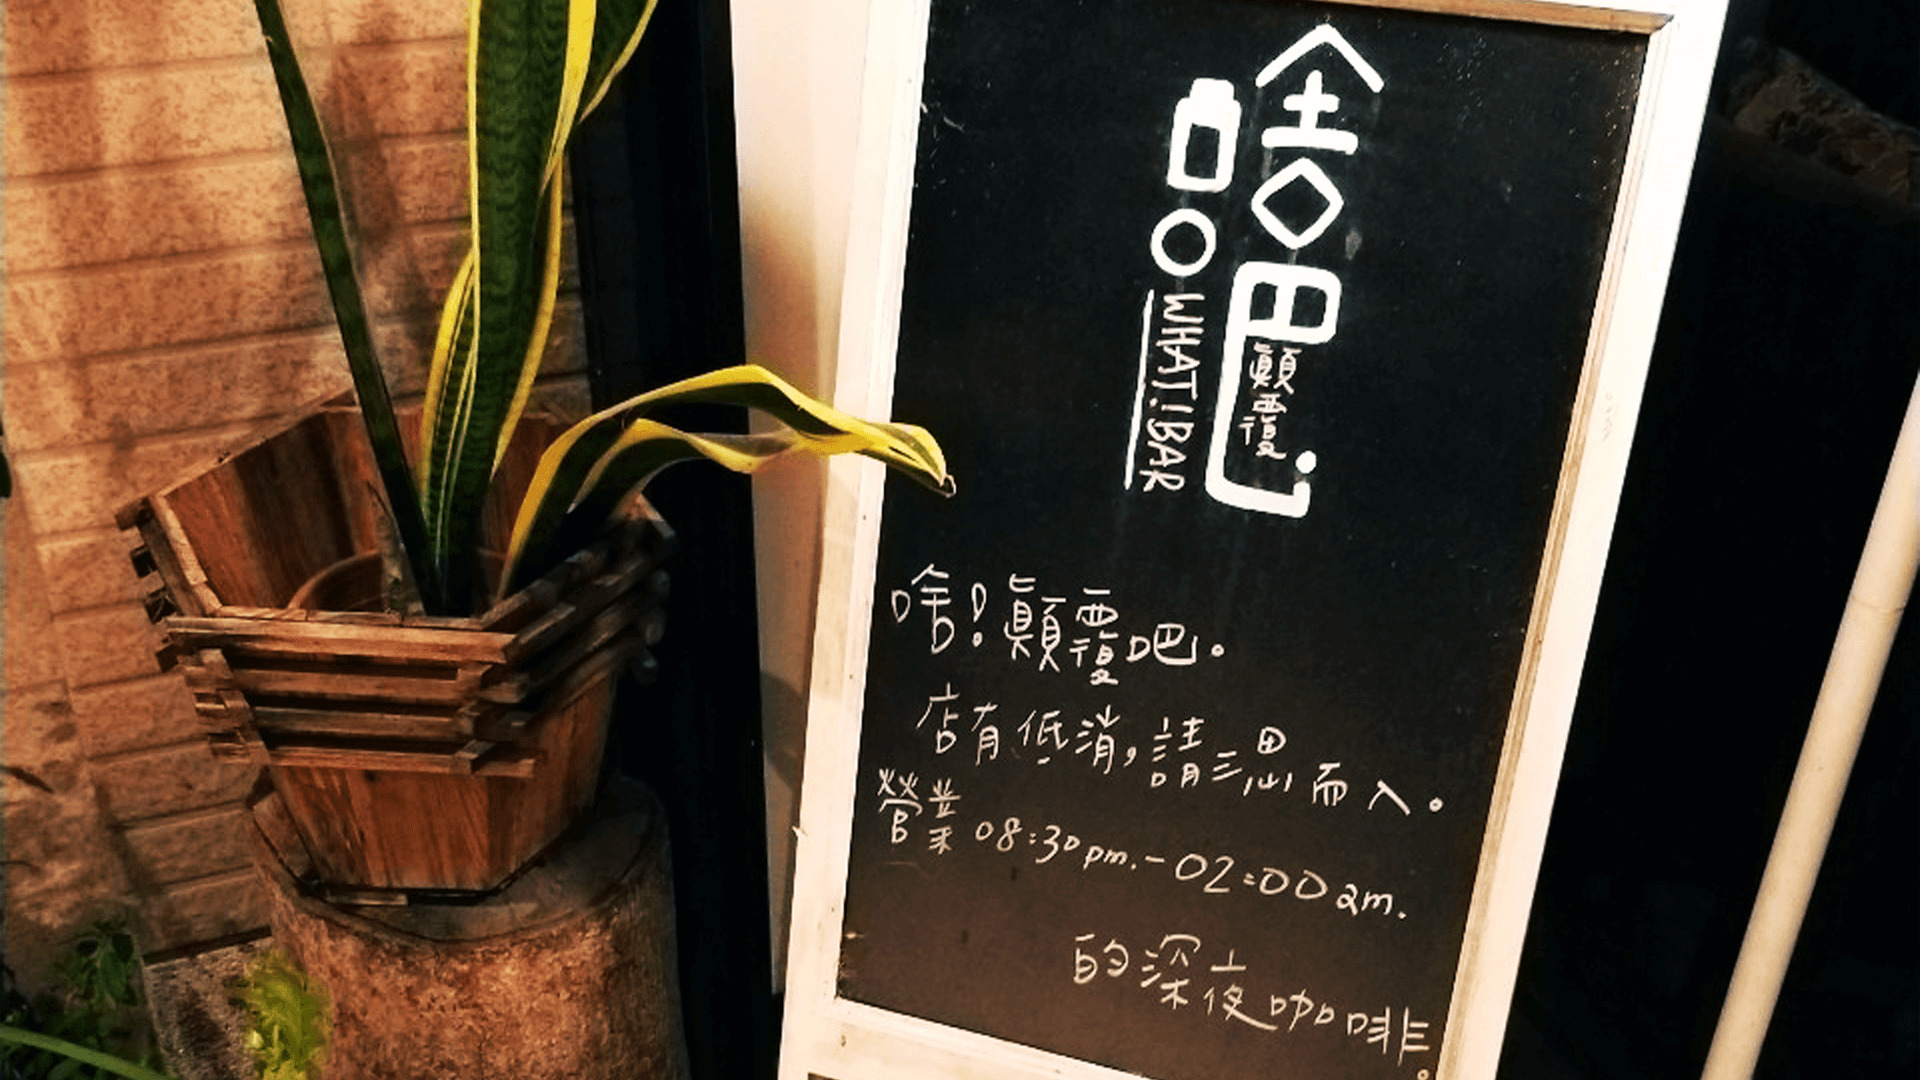 啥吧
顛覆
WHAT!BAR
啥!顛覆吧。
店有低消,請三思而入。
營業 08:30pm.-02:00am.
的深夜咖啡。